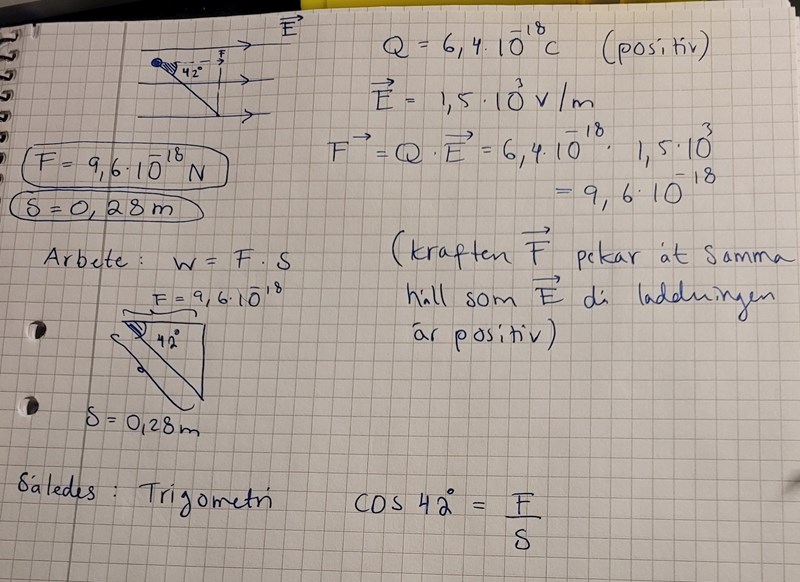 E
F
42°
Q = 6,4·10^-18 C (positiv)
E = 1,5·10^3 V/m
F = Q · E = 6,4·10^-18 · 1,5·10^3
= 9,6·10^-18
F = 9,6·10^-18 N
S = 0,28 m
Arbete: W = F · S
F = 9,6·10^-18
42°
S = 0,28 m
(kraften F pekar åt samma
håll som E då laddningen
är positiv)
Således: Trigometri cos 42° = F/S